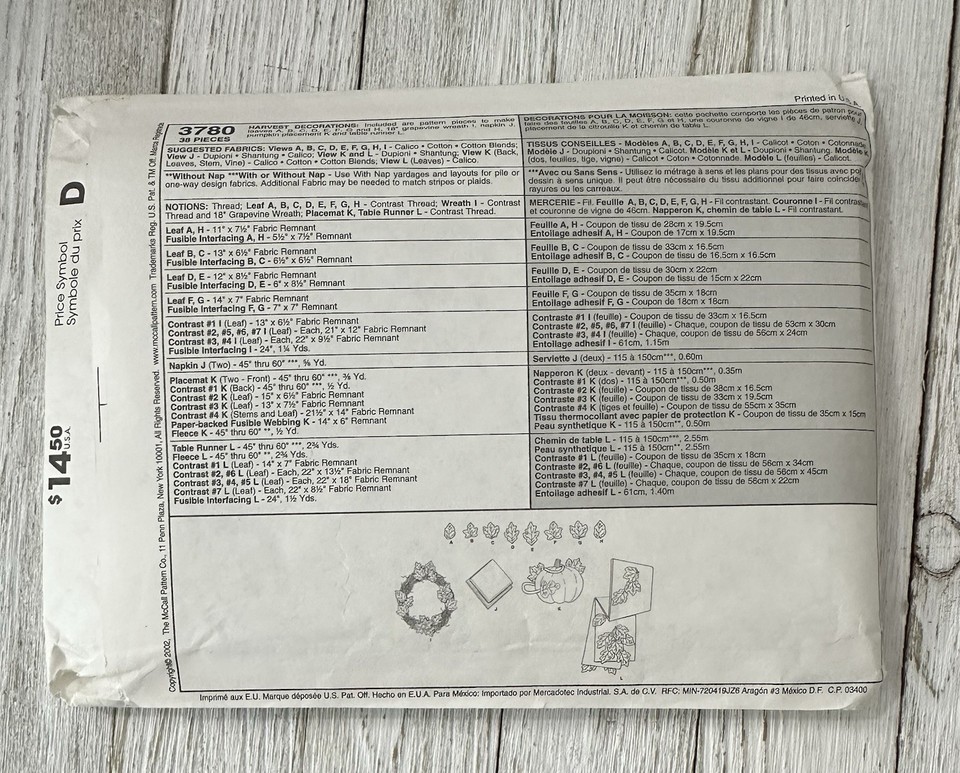 Printed in U.S.A.
3780
38 PIECES
HARVEST DECORATIONS: Included are pattern pieces to make
leaves A, B, C, D, E, F, G and H, 18" grapevine wreath I, napkin J,
pumpkin placemat K and table runner L.
SUGGESTED FABRICS: Views A, B, C, D, E, F, G, H, I - Calico • Cotton • Cotton Blends;
View J - Dupioni • Shantung • Calico; View K and L - Dupioni • Shantung; View K (Back,
Leaves, Stem, Vine) - Calico • Cotton • Cotton Blends; View L (Leaves) - Calico.
**Without Nap ***With or Without Nap - Use With Nap yardages and layouts for pile or
one-way design fabrics. Additional Fabric may be needed to match stripes or plaids.
NOTIONS: Thread; Leaf A, B, C, D, E, F, G, H - Contrast Thread; Wreath I - Contrast
Thread and 18" Grapevine Wreath; Placemat K, Table Runner L - Contrast Thread.
Leaf A, H - 11" x 7½" Fabric Remnant
Fusible Interfacing A, H - 5½" x 7½" Remnant
Leaf B, C - 13" x 6½" Fabric Remnant
Fusible Interfacing B, C - 6½" x 6½" Remnant
Leaf D, E - 12" x 8½" Fabric Remnant
Fusible Interfacing D, E - 6" x 8½" Remnant
Leaf F, G - 14" x 7" Fabric Remnant
Fusible Interfacing F, G - 7" x 7" Remnant
Contrast #1 I (Leaf) - 13" x 6½" Fabric Remnant
Contrast #2, #5, #6, #7 I (Leaf) - Each, 21" x 12" Fabric Remnant
Contrast #3, #4 I (Leaf) - Each, 22" x 9½" Fabric Remnant
Fusible Interfacing I - 24", 1¼ Yds.
Napkin J (Two) - 45" thru 60" ***, ⅝ Yd.
Placemat K (Two - Front) - 45" thru 60" ***, ⅜ Yd.
Contrast #1 K (Back) - 45" thru 60" ***, ½ Yd.
Contrast #2 K (Leaf) - 15" x 6½" Fabric Remnant
Contrast #3 K (Leaf) - 13" x 7½" Fabric Remnant
Contrast #4 K (Stems and Leaf) - 21½" x 14" Fabric Remnant
Paper-backed Fusible Webbing K - 14" x 6" Remnant
Fleece K - 45" thru 60" **, ½ Yd.
Table Runner L - 45" thru 60" ***, 2¾ Yds.
Fleece L - 45" thru 60" **, 2¾ Yds.
Contrast #1 L (Leaf) - 14" x 7" Fabric Remnant
Contrast #2, #6 L (Leaf) - Each, 22" x 13½" Fabric Remnant
Contrast #3, #4, #5 L (Leaf) - Each, 22" x 18" Fabric Remnant
Contrast #7 L (Leaf) - Each, 22" x 8½" Fabric Remnant
Fusible Interfacing L - 24", 1½ Yds.
DECORATIONS POUR LA MOISSON: cette pochette comporte les pièces de patron pour
faire des feuilles A, B, C, D, E, F, G et H, une couronne de vigne I de 46cm, serviette J,
placement de la citrouille K et chemin de table L.
TISSUS CONSEILLES - Modèles A, B, C, D, E, F, G, H, I - Calicot • Coton • Cotonnade.
Modèle J - Doupioni • Shantung • Calicot. Modèle K et L - Doupioni • Shantung. Modèle K
(dos, feuilles, tige, vigne) - Calicot • Coton • Cotonnade. Modèle L (feuilles) - Calicot.
***Avec ou Sans Sens - Utilisez le métrage à sens et les plans pour des tissus avec poil
dessin à sens unique. Il peut être nécessaire du tissu additionnel pour faire coincider
rayures ou les carreaux.
MERCERIE - Fil. Feuille A, B, C, D, E, F, G, H - Fil contrastant. Couronne I - Fil contrastant
et couronne de vigne de 46cm. Napperon K, chemin de table L - Fil contrastant.
Feuille A, H - Coupon de tissu de 28cm x 19.5cm
Entoilage adhesif A, H - Coupon de 17cm x 19.5cm
Feuille B, C - Coupon de tissu de 33cm x 16.5cm
Entoilage adhesif B, C - Coupon de tissu de 16.5cm x 16.5cm
Feuille D, E - Coupon de tissu de 30cm x 22cm
Entoilage adhesif D, E - Coupon de tissu de 15cm x 22cm
Feuille F, G - Coupon de tissu de 35cm x 18cm
Entoilage adhesif F, G - Coupon de tissu de 18cm x 18cm
Contraste #1 I (feuille) - Coupon de tissu de 33cm x 16.5cm
Contraste #2, #5, #6, #7 I (feuille) - Chaque, coupon de tissu de 53cm x 30cm
Contraste #3, #4 I (feuille) - Chaque, coupon de tissu de 56cm x 24cm
Entoilage adhesif I - 61cm, 1.15m
Serviette J (deux) - 115 à 150cm***, 0.60m
Napperon K (deux - devant) - 115 à 150cm***, 0.35m
Contraste #1 K (dos) - 115 à 150cm***, 0.50m
Contraste #2 K (feuille) - Coupon de tissu de 38cm x 16.5cm
Contraste #3 K (feuille) - Coupon de tissu de 33cm x 19.5cm
Contraste #4 K (tiges et feuille) - Coupon de tissu de 55cm x 35cm
Tissu thermocollant avec papier de protection K - Coupon de tissu de 35cm x 15cm
Peau synthetique K - 115 à 150cm**, 0.50m
Chemin de table L - 115 à 150cm***, 2.55m
Peau synthetique L - 115 à 150cm**, 2.55m
Contraste #1 L (feuille) - Coupon de tissu de 35cm x 18cm
Contraste #2, #6 L (feuille) - Chaque, coupon de tissu de 56cm x 34cm
Contraste #3, #4, #5 L (feuille) - Chaque, coupon de tissu de 56cm x 45cm
Contraste #7 L (feuille) - Chaque, coupon de tissu de 56cm x 22cm
Entoilage adhesif L - 61cm, 1.40m
A B C D E F G H
I J K
L
Imprimé aux E.U. Marque déposée U.S. Pat. Off. Hecho en E.U.A. Para México; Importado por Mercadotec Industrial. S.A. de C.V. RFC: MIN-720419JZ6 Aragón #3 México D.F. C.P. 03400
Copyright© 2002, The McCall Pattern Co., 11 Penn Plaza, New York 10001, All Rights Reserved. www.mccallpattern.com Trademarks Reg. U.S. Pat. & TM Off. Marca Registrada
Price Symbol
Symbole du prix D
$14.50
U.S.A.